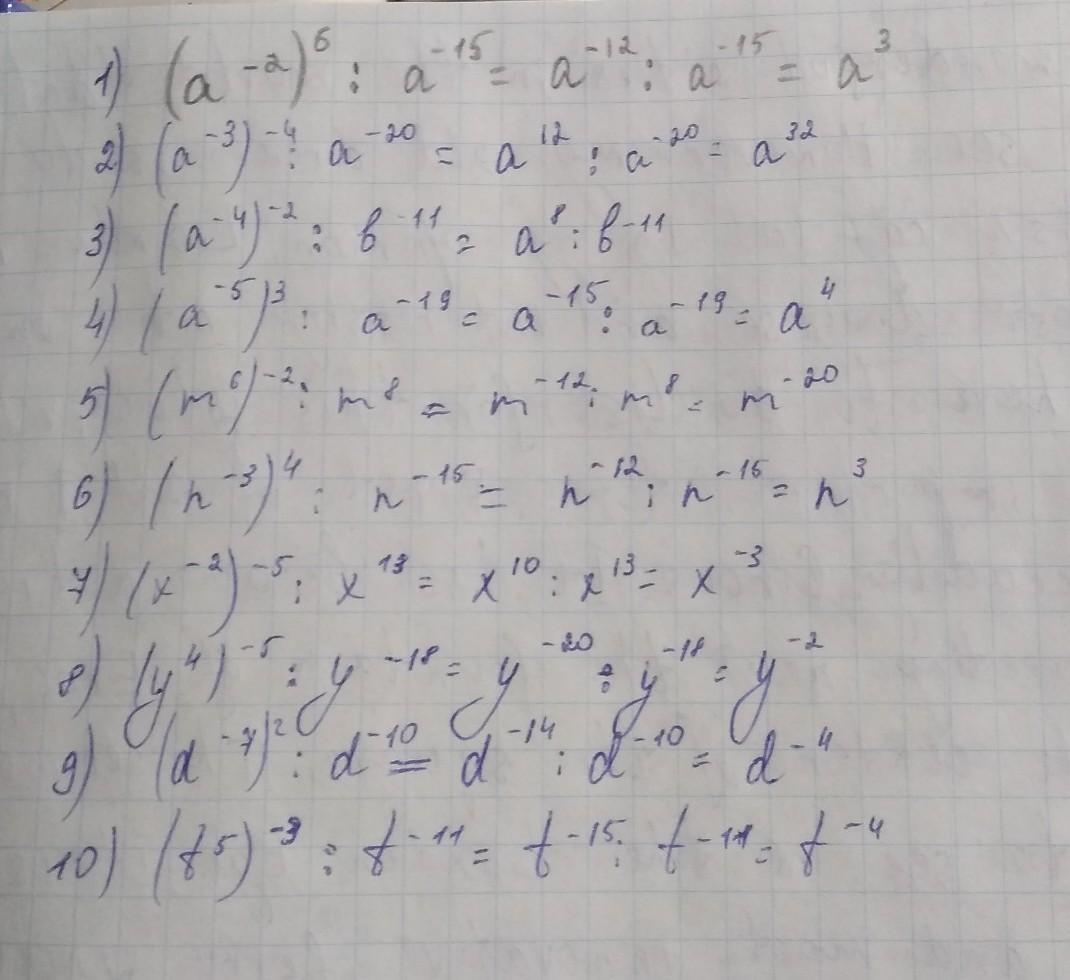 1) (a⁻²)⁶ : a⁻¹⁵ = a⁻¹² : a⁻¹⁵ = a³
2) (a⁻³)⁻⁴ : a⁻²⁰ = a¹² : a⁻²⁰ = a³²
3) (a⁻⁴)⁻² : в⁻¹¹ = a⁸ : в⁻¹¹
4) (a⁻⁵)³ : a⁻¹⁹ = a⁻¹⁵ : a⁻¹⁹ = a⁴
5) (m⁶)⁻² : m⁸ = m⁻¹² : m⁸ = m⁻²⁰
6) (n⁻³)⁴ : n⁻¹⁵ = n⁻¹² : n⁻¹⁵ = n³
7) (x⁻²)⁻⁵ : x¹³ = x¹⁰ : x¹³ = x⁻³
8) (y⁴)⁻⁵ : y⁻¹⁸ = y⁻²⁰ : y⁻¹⁸ = y⁻²
9) (d⁻⁷)² : d⁻¹⁰ = d⁻¹⁴ : d⁻¹⁰ = d⁻⁴
10) (t⁵)⁻³ : t⁻¹¹ = t⁻¹⁵ : t⁻¹¹ = t⁻⁴